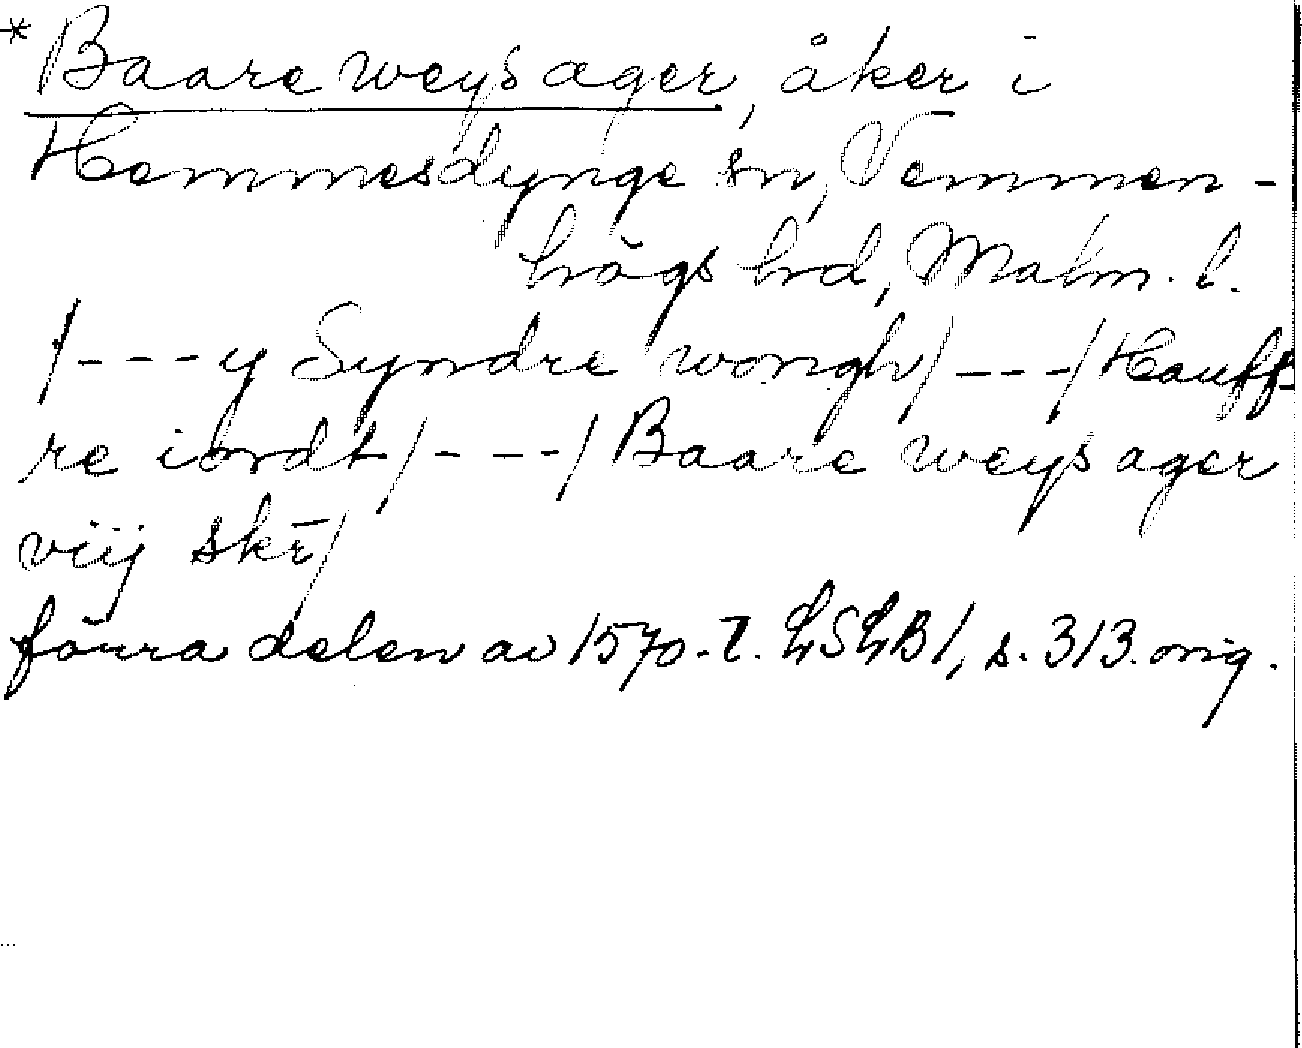 * Baare weys ager, åker i
Hemmesdynge sn, Vemmen-
högs hd, Malm. l.
/---y Syndre wongh/---/Hauff-
re iordt/---/Baare weys ager
viij skr/
förra delen av 1570-t. LSLB1, s. 313. orig.